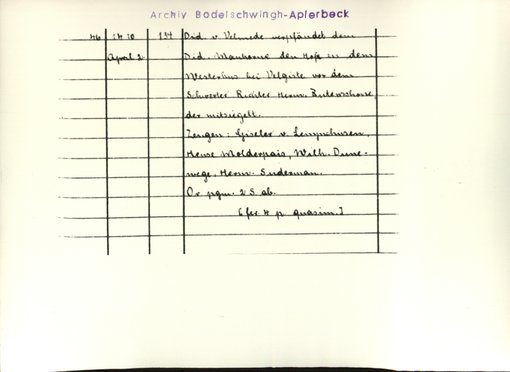 Archiv Bodelschwingh-Aplerbeck
46 1410 134 Did. v. Velmede verpfändet dem
April 2 Did. den Hof in dem
Westerhus bei Velgiste vor dem
Schwerter Richter Herm.
der mitsiegelt.
Zeugen: Giseler v.
Molderpais, Wilh. Dune-
wege, Herm. Suderman.
Or. pgm. 2 S. ab.
[fer 4 p quasim.]